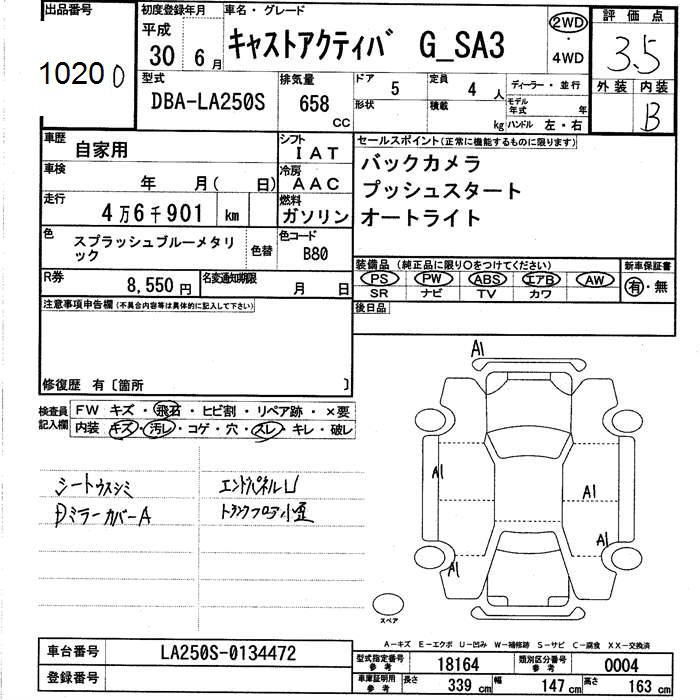 出品番号
1020 D
初度登録年月
平成
30 6月
車名・グレード
キャストアクティバ G_SA3
2WD
・
4WD
評価点
3.5
外装 内装
B
型式
DBA-LA250S
排気量
658
CC
ドア
5
定員
4 人
形状
積載
kg
ディーラー・並行
モデル年式 年
ハンドル 左・右
車歴
自家用
シフト
IAT
車検
年 月( 日)
冷房
AAC
走行
4万6千901 km
燃料
ガソリン
色
スプラッシュブルーメタリ
ック
色替
色コード
B80
R券
8,550円
名変通知期限
月 日
セールスポイント(正常に機能するものに限ります)
バックカメラ
プッシュスタート
オートライト
装備品 (純正品に限り○をつけてください)
PS PW ABS エアB AW
SR ナビ TV カワ
新車保証書
有・無
後日品
注意事項申告欄(不具合内容等は具体的に記入して下さい)
修復歴 有〔箇所 〕
検査員
記入欄
FW キズ・飛石・ヒビ割・リペア跡・×要
内装 キズ・汚レ・コゲ・穴・スレ・キレ・破レ
シートウスシミ
Dミラーカバー A
エンドパネルU
トランクフロア小歪
A1
A1
A1
A1
A1
スペア
A-キズ E-エクボ U-凹み W-補修跡 S-サビ C-腐食 XX-交換済
車台番号
LA250S-0134472
登録番号
型式指定番号
参考
18164
類別区分番号
参考
0004
車庫証明用
参考
長さ
339 cm
幅
147 cm
高さ
163 cm